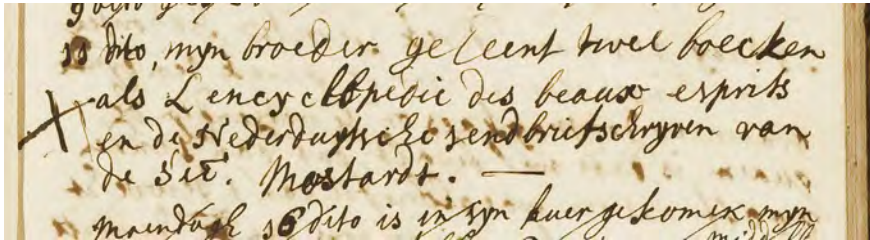 18 dito, myn broeder geleent twee boecken
als L'encyclopedie des beaux esprits
en de Nederduytsche sendbriefschryver van
de Sr. Mostardt. —
Maendagh 16 dito is in syn huer gekomen myn